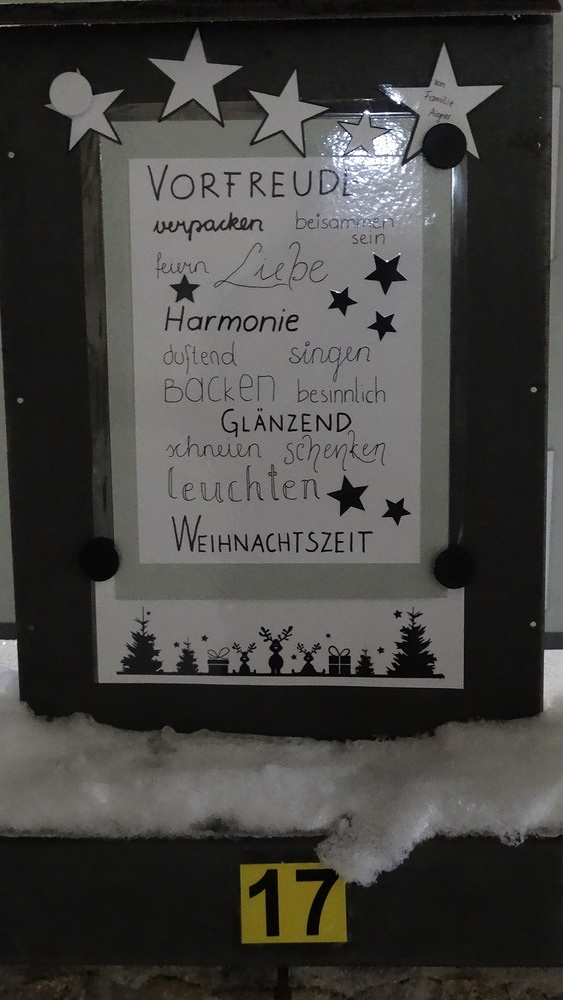 von
Familie
Aigner
VORFREUDE
verpacken beisammen
sein
feiern Liebe
Harmonie
duftend singen
BACKEN besinnlich
GLÄNZEND
schneien schenken
leuchten
WEIHNACHTSZEIT
17